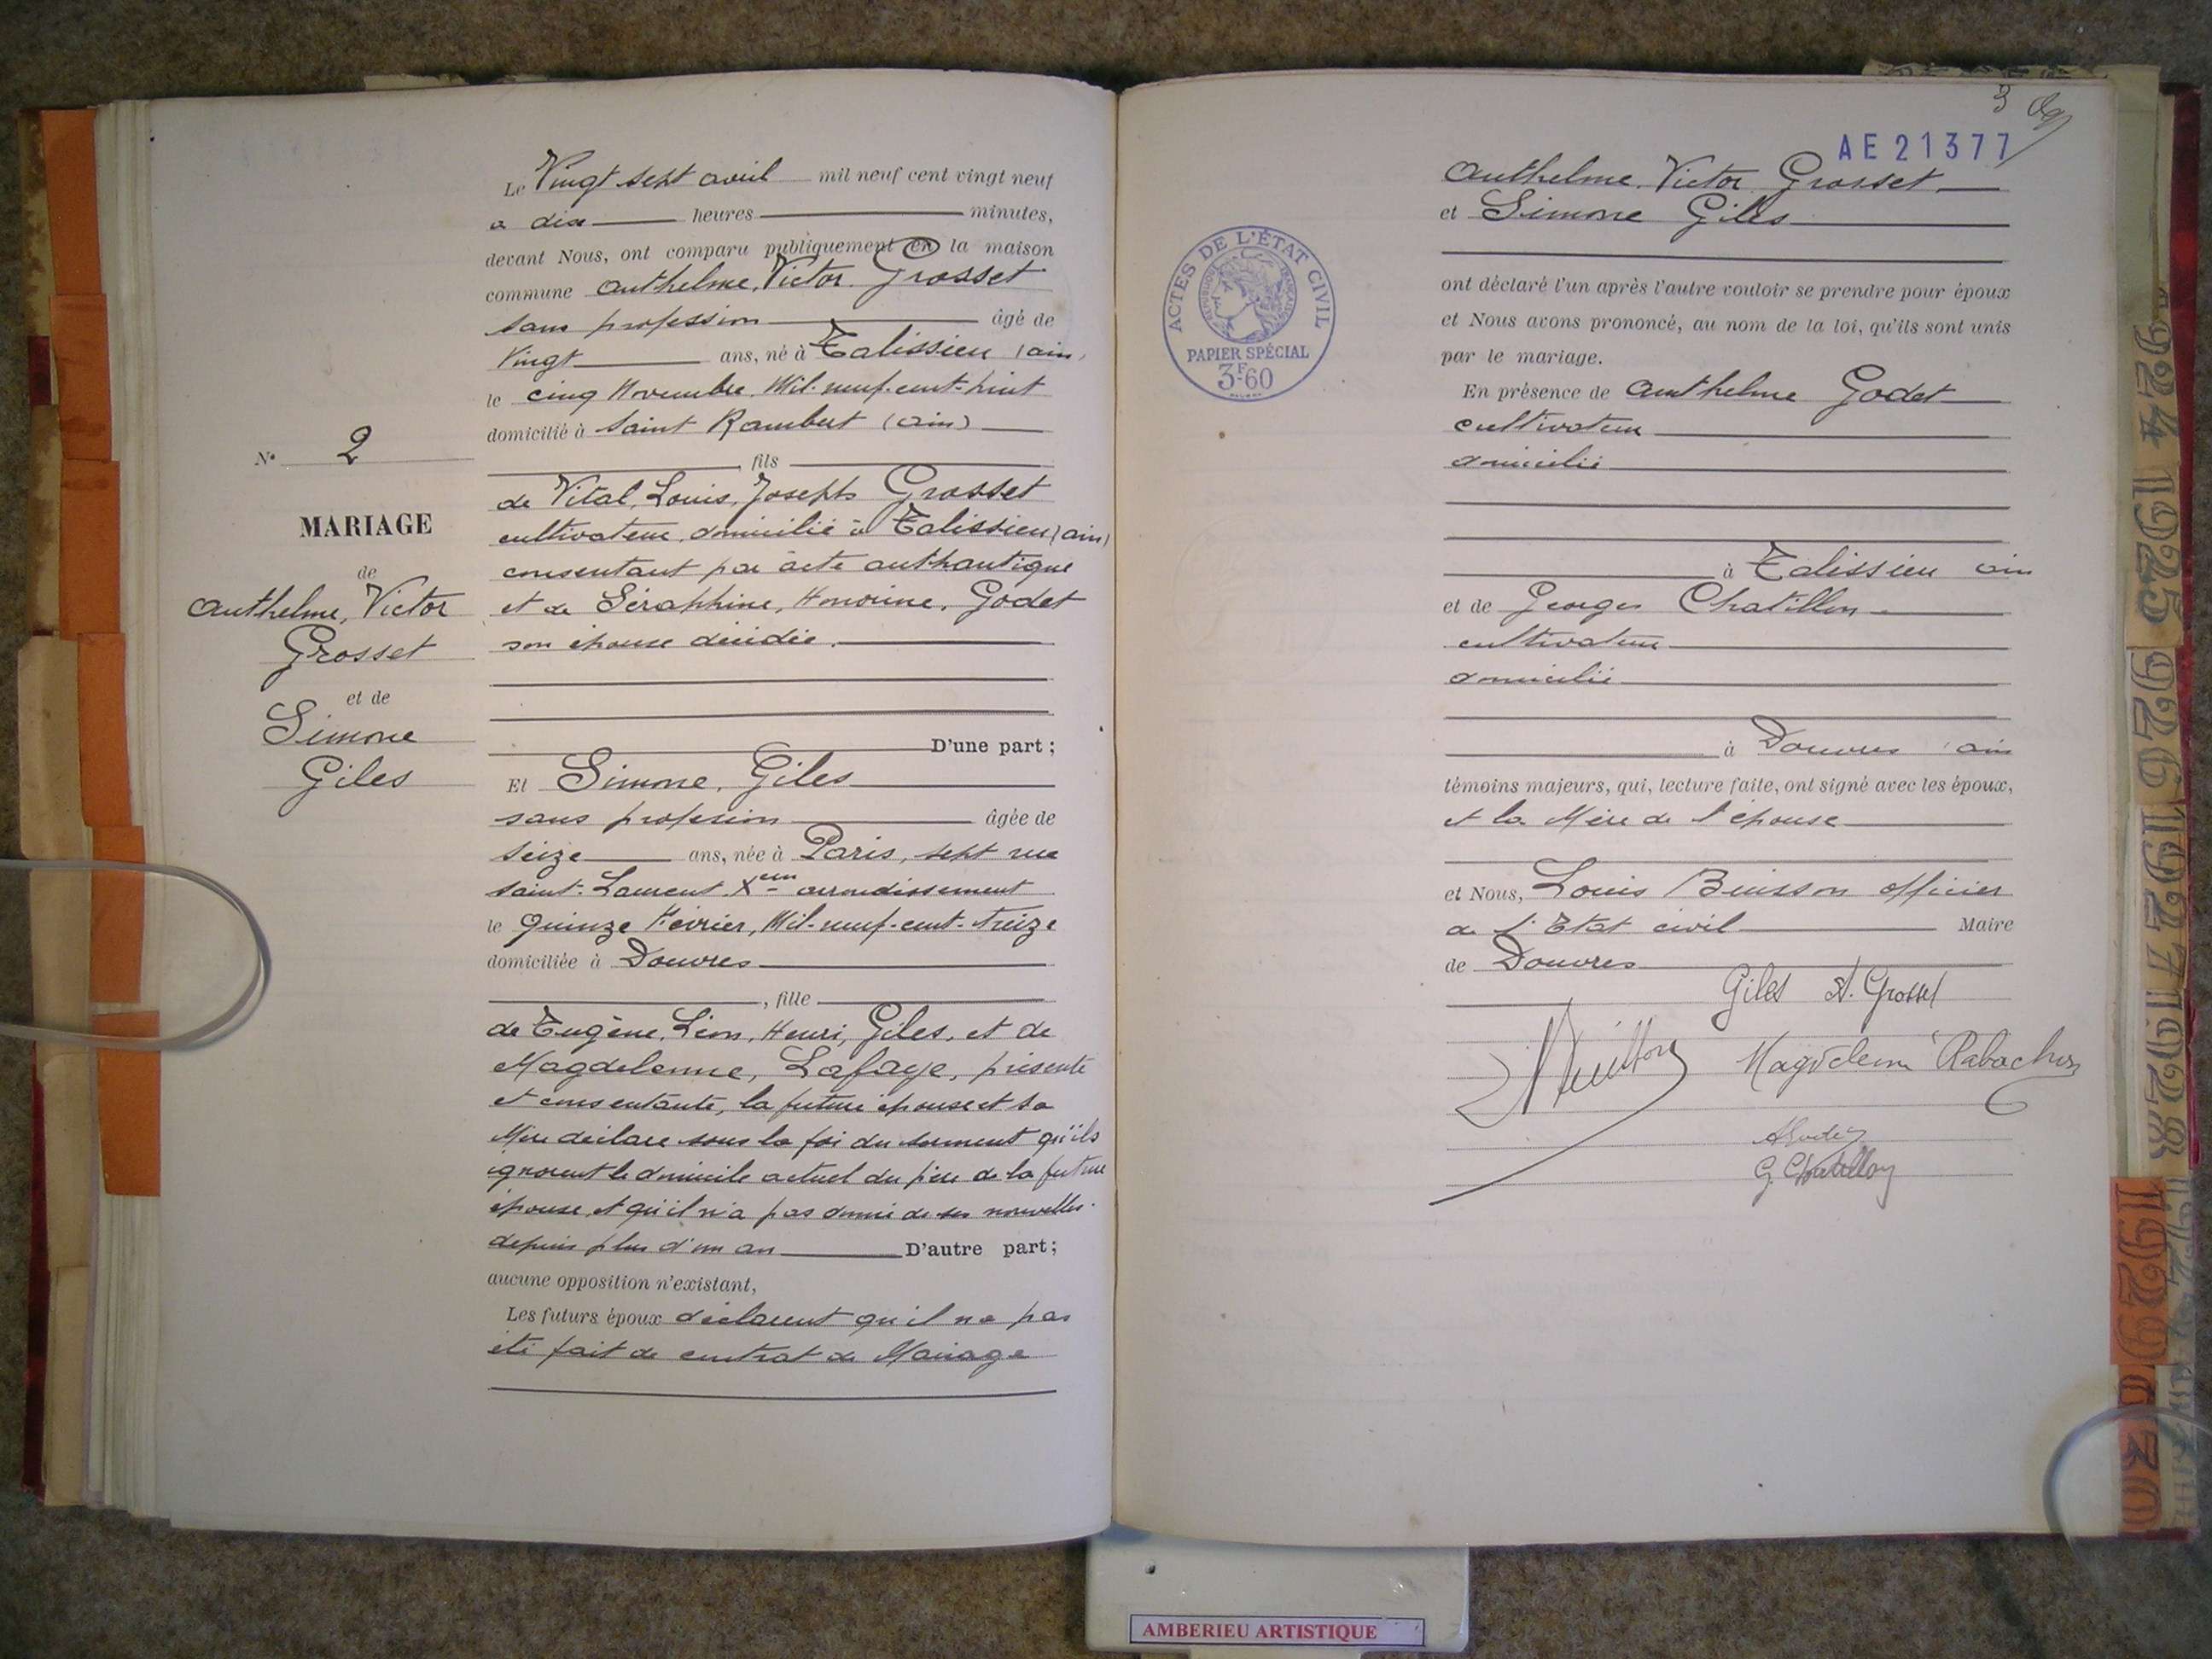 Le Vingt sept avril mil neuf cent vingt neuf
a dix heures minutes,
devant Nous, ont comparu publiquement en la maison
commune Anthelme, Victor Grosset
sans profession âgé de
Vingt ans, né à Talissieu (ain)
le cinq Novembre, Mil-neuf-cent-huit
domicilié à Saint Rambert (ain)
, fils
de Vital, Louis, Joseph Grosset
cultivateur, domicilié à Talissieu (ain)
consentant par acte authantique
et de Séraphine, Honorine, Godet
son épouse décédée.
D'une part ;
Et Simone, Giles
sans profession âgée de
Seize ans, née à Paris, sept rue
Saint-Laurent, Xem arrondissement
le Quinze Février, Mil-neuf-cent-treize
domiciliée à Douvres
, fille
de Eugène, Léon, Henri, Giles, et de
Magdelenne, Lafaye, présente
et consentante, la future épouse et sa
Mère déclare sous la foi du serment qu'ils
ignorent le domicile actuel du père de la future
épouse, et qu'il n'a pas donné de ses nouvelles
depuis plus d'un an D'autre part ;
aucune opposition n'existant,
Les futurs époux déclarent qu'il na pas
été fait de contrat de Mariage
N° 2
MARIAGE
de
Anthelme, Victor
Grosset
et de
Simone
Giles
3
AE 21377
Anthelme, Victor Grosset
et Simone Giles
ont déclaré l'un après l'autre vouloir se prendre pour époux
et Nous avons prononcé, au nom de la loi, qu'ils sont unis
par le mariage.
En présence de Anthelme Godet
cultivateur
domicilié
à Talissieu ain
et de Georges Chatillon
cultivateur
domicilié
à Douvres ain
témoins majeurs, qui, lecture faite, ont signé avec les époux,
et la Mère de l'épouse
et Nous, Louis Buisson officier
de l'Etat civil Maire
de Douvres
Giles A. Grosset
Magdelenne
G. Chatillon
ACTES DE L'ÉTAT CIVIL
RÉPUBLIQUE FRANÇAISE
PAPIER SPÉCIAL
3F60
1924
1925
1926
1927
1928
1929
AMBERIEU ARTISTIQUE